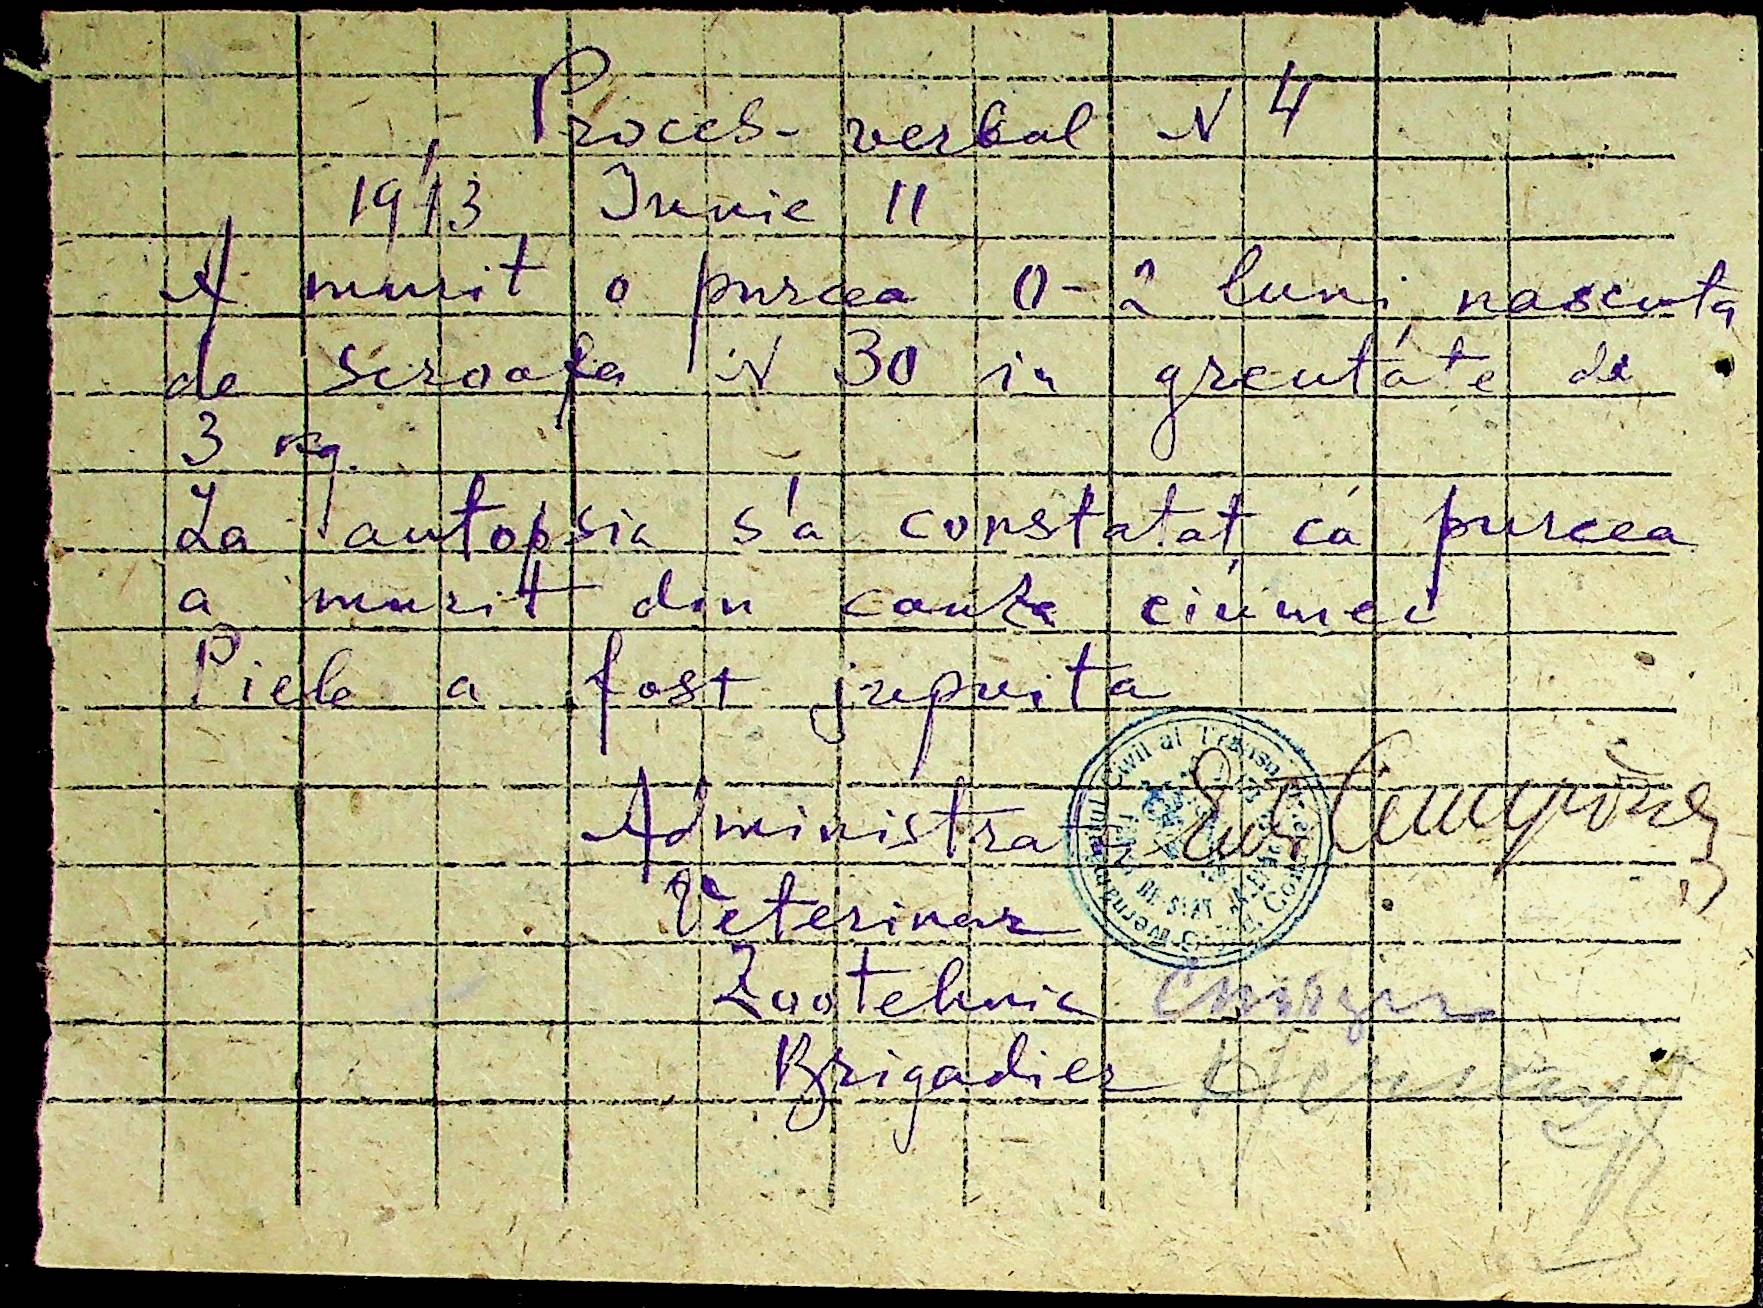 Proces-verbal N 4
1943 Iunie 11
A murit o purcea 0-2 luni nascuta
de scroafa N 30 in greutate de
3 kg.
La autopsia s'a constatat că purcea
a murit din cauza ciumei
Piele a fost jupuita
Administrat
Veterinar
Zootehnic
Brigadier
Guvernamântul Civil al Transn